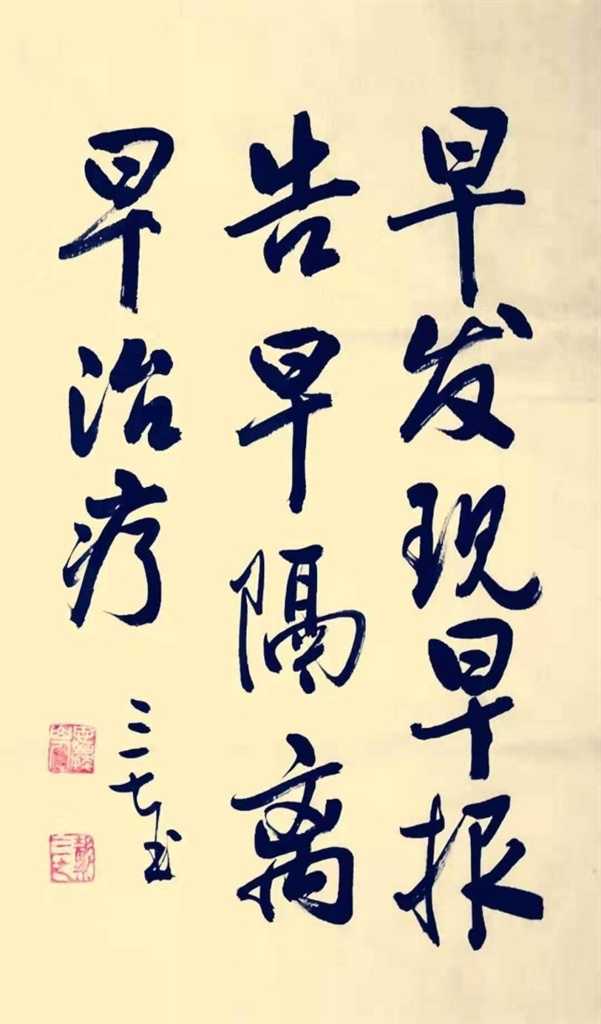 早发现早报
告早隔离
早治疗
三一七书